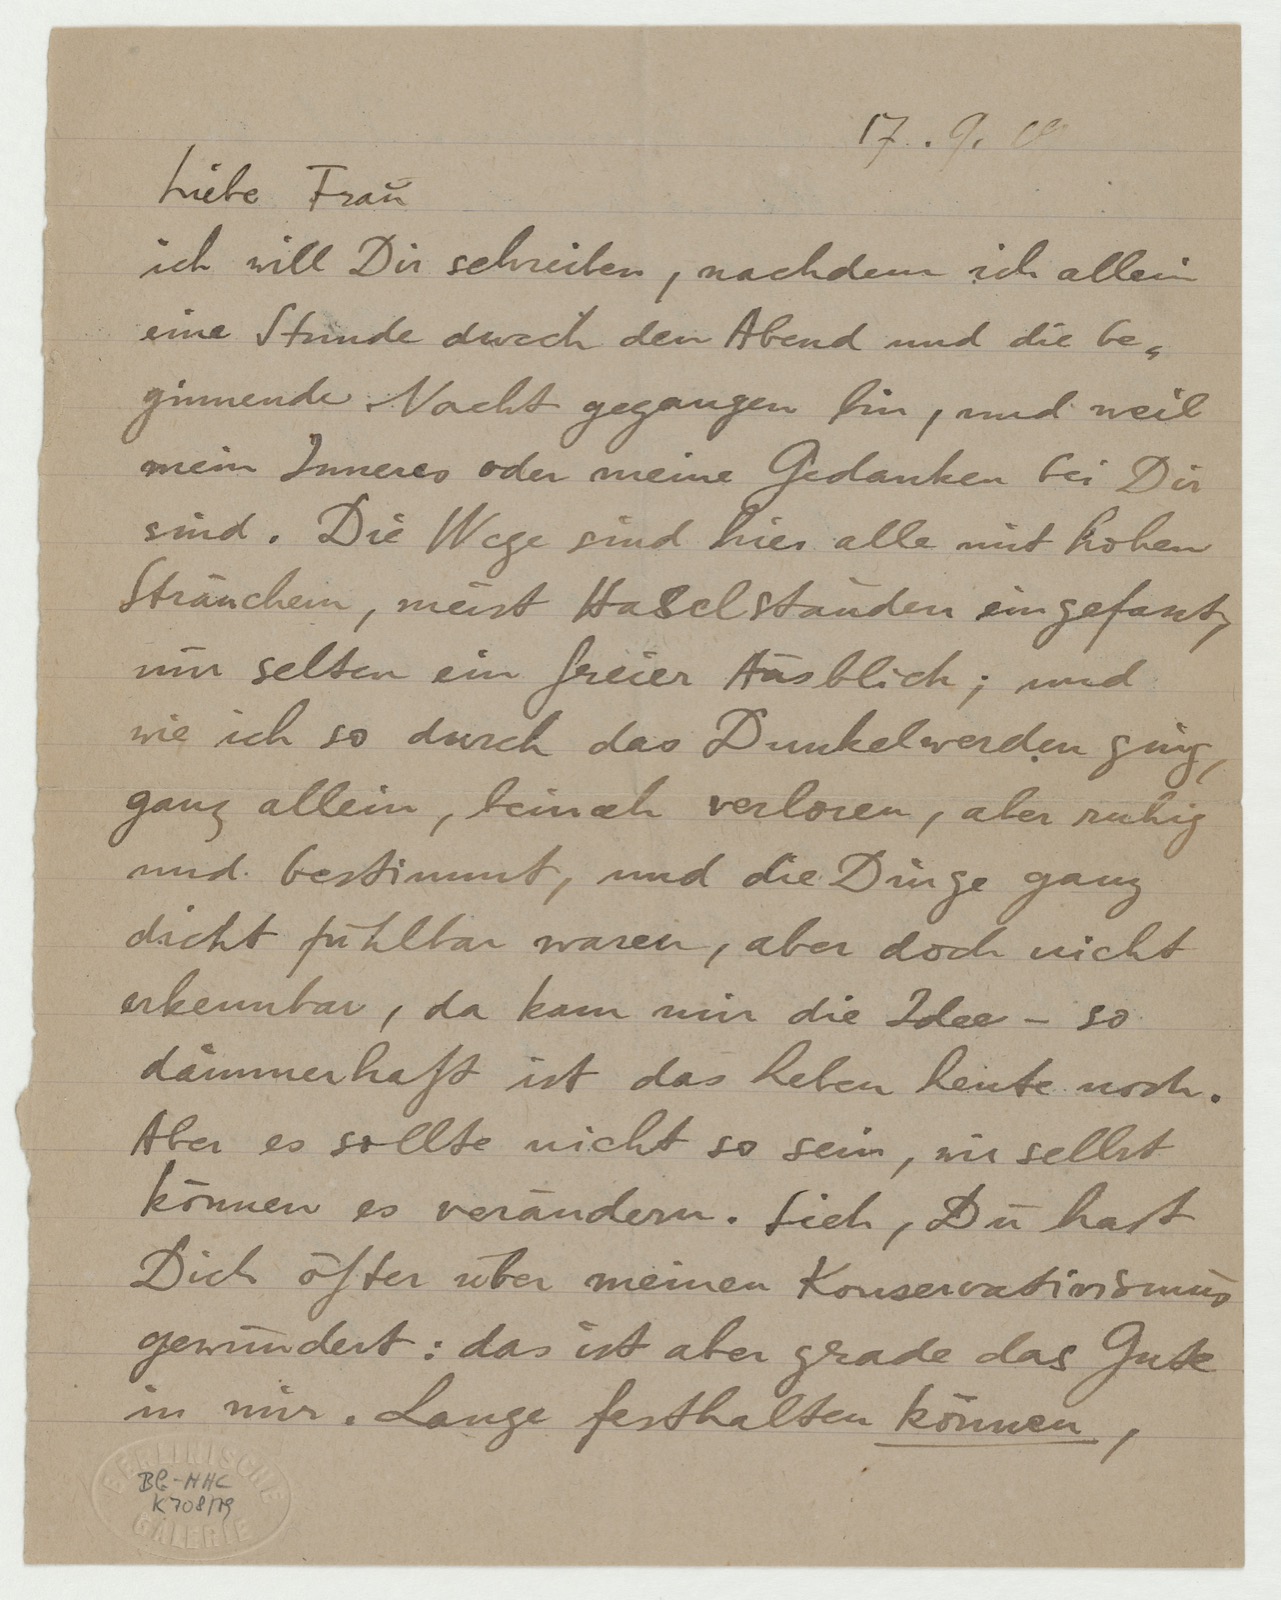 17. 9.
Liebe Frau
ich will Dir schreiben, nachdem ich allein
eine Stunde durch den Abend und die be-
ginnende Nacht gegangen bin, und weil
mein Inneres oder meine Gedanken bei Dir
sind. Die Wege sind hier alle mit hohen
Sträuchern, meist Haselstauden eingefasst,
nur selten ein freier Ausblick; und
wie ich so durch das Dunkelwerden ging,
ganz allein, beinah verloren, aber ruhig
und bestimmt, und die Dinge ganz
dicht fühlbar waren, aber doch nicht
erkennbar, da kam mir die Idee – so
dämmerhaft ist das Leben heute noch.
Aber es sollte nicht so sein, wir selbst
können es verändern. Sieh, Du hast
Dich öfter über meinen Konservativismus
gewundert: das ist aber grade das Gute
in mir. Lange festhalten können,
BERLINISCHE
BG-HHC
K708/79
GALERIE